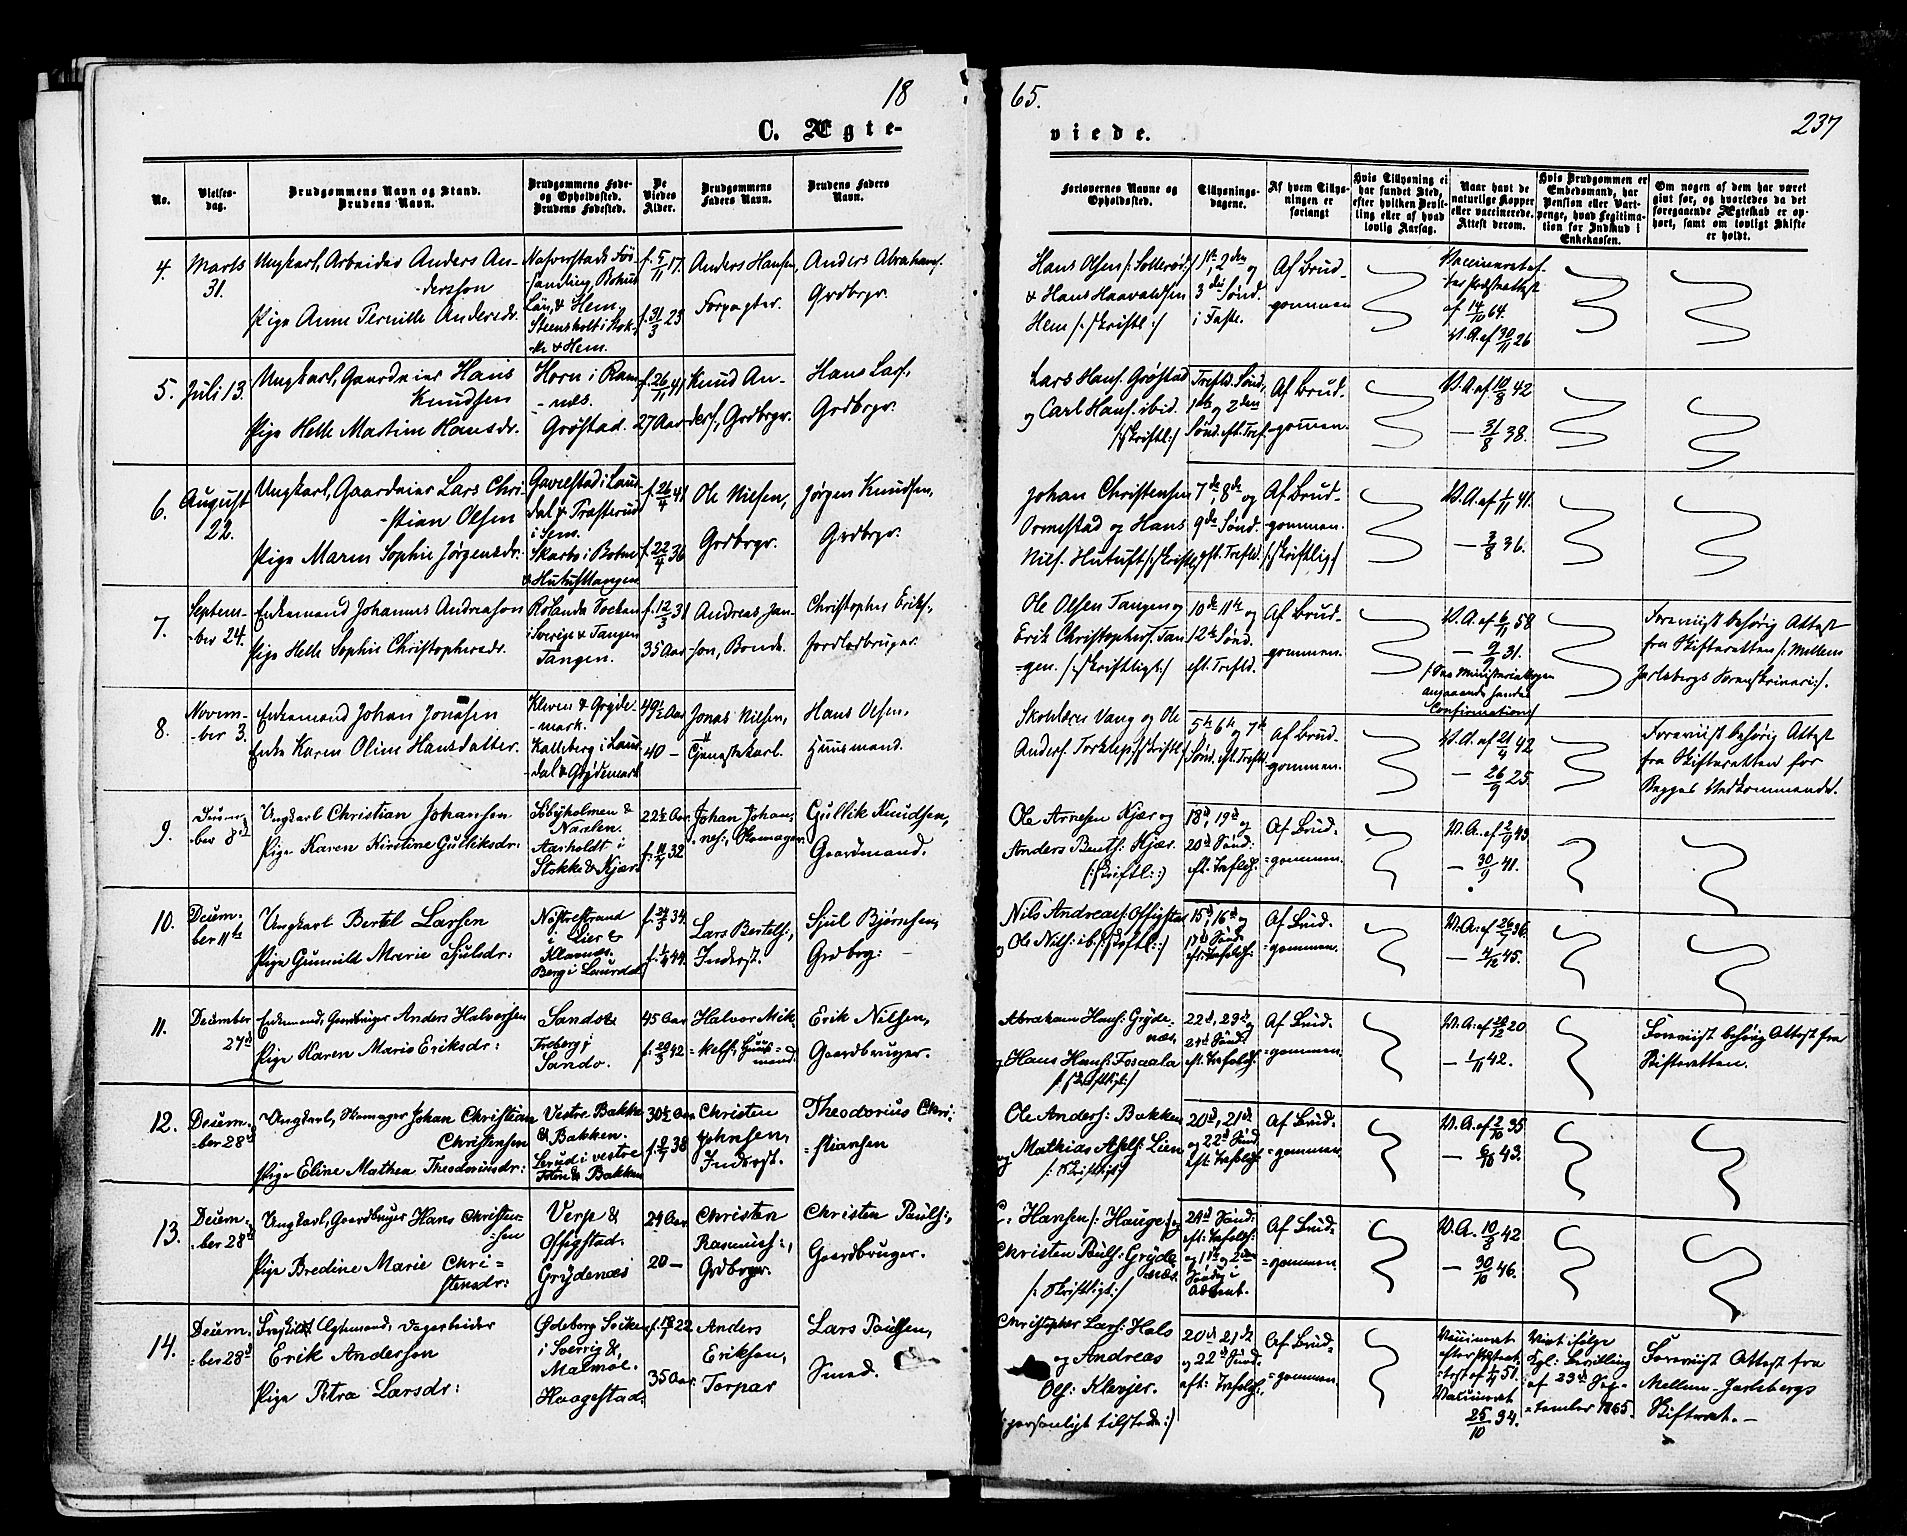 18
65.
237
C. Ægte-
viede.
No.
Vielses-
dag.
Brudgommens Navn og Stand.
Brudens Navn.
Brudgommens Føde-
og Opholdssted.
Brudens Fødested.
De
Viedes
Alder.
Brudgommens
Faders Navn.
Brudens Faders
Navn.
Forlovernes Navne og
Opholdssted.
Tillysnings-
dagene.
Af hvem Tillys-
ningen er
forlangt
Hvis Tillysning ei
har fundet Sted,
efter hvilken Bevil-
ling eller af hvad
lovlig Aarsag.
Naar havt de
naturlige Kopper
eller vaccinerede.
Attest derom.
Hvis Brudgommen er
Embedsmand, har
Pension eller Vart-
penge, hvad Legitima-
tion for Indskud i
Enkekassen.
Om nogen af dem har været
givt før, og hvorledes da det
foregaaende Ægteskab er op-
hørt, samt om lovligt Skifte
er holdt.
4.
Marts
31.
Ungkarl, Arbeider Anders An-
-dersson
Pige Anne Pernille Andersdr.
Naverstads För-
samling, Bohus
Län, & Hem,
Steensholt i Stok-
-ke & Hem.
f. 5/11 17.
f. 31/3 23
Anders Hansen,
Forpagter.
Anders Abrahams.
Grdbrgr.
Hans Olsen /: Solleröd :/
& Hans Haavaldsen
Hem /: skriftl :/
1ste, 2den og
3die Sønd.
i Faste.
Af Brud-
gommen
Vaccineret ef-
ter Præsteattest
af 14/10 64.
V. A. af 30/11 26
5.
Juli 13.
Ungkarl, Gaardeier Hans
Knudsen
Pige Helle Martine Hansdr.
Horn i Ram-
-næs.
Grøstad.
f. 26/11 41
27 Aar
Knud An-
ders., Grdbrgr.
Hans Lars.,
Grdbrgr.
Lars Hans. Grøstad
og Carl Hans. ibid.
/: skriftl :/
Trefld. Sønd.,
1ste og 2den
Sønd. eft. Tref.
Af Brud-
-gommen.
V. A. af 10/9 42
— 31/8 38.
6.
August
22.
Ungkarl, Gaardeier Lars Chri-
-stian Olsen
Pige Maren Sophie Jørgensdr.
Gavelstad i Laur-
dal & Træsterud
i Sem.
Skarbo i Botne
& Hutuftangen
f. 26/4 41
f. 22/4 36
Ole Nilsen,
Grdbrgr.
Jørgen Knudsen,
Grdbrgr.
Johan Christensen
Ormestad og Hans
Nils. Hutuft /: skriftl :/
7de, 8de og
9de Sønd.
eft. Trefld.
Af Brud-
-gommen.
/: skriftlig :/
V. A. af 1/11 41.
— 3/8 36.
7.
Septem-
-ber 24.
Enkemand Johannes Andreason
Pige Helle Sophie Christophersdr.
Rölanda Socken
i Sverige & Tangen
Tangen.
f. 12/3 31
35 Aar
Andreas Jan-
-son, Bonde.
Christopher Eriks.,
Jordlodbruger.
Ole Olsen Tangen og
Erik Christophers. Tan
=gen. /: skriftligt :/
10de 11te og
12te Sønd.
eft. Trefld.
Af Brud-
-gommen.
V. A. af 6/11 58
— 9/9 31.
/ See Ministerialbogen
angaaende hendes
Confirmation /
Foreviist behørig Attest
fra Skifteretten /: Mellem
Jarlsbergs Sorenskriveri :/.
8.
Novem-
-ber 3.
Enkemand Johan Jonasen
Enke Karen Oline Hansdatter.
Kleven & Gryde-
-mark.
Kalleberg i Laur-
dal & Grydemark
49½ Aar
40 —
Jonas Nilsen,
Tjenestekarl.
Hans Olsen,
Huusmand.
Skolelærer Vang og Ole
Anders. Torklep /: skriftl :/
5te 6te og 7de
Sønd. eft. Trefld
Af Brud-
-gommen.
V. A. af 21/4 42
— 26/9 25.
Foreviist behørig Attest
fra Skifteretten for
Begges Vedkommende.
9.
Decem-
-ber 8d
Ungkarl Christian Johansen
Pige Karen Kirstine Gulliksdr:
Sebyholmen &
Narlen.
Aasholdt i
Stokke & Kjær.
22½ Aar
Johan Johan-
nes:, Skomager.
Gullik Knudsen,
Gaardmand.
Ole Arnesen Kjær og
Anders Bents: Kjær.
(:skriftl::)
18d, 19d og
20d Sønd:
eft. Trefoldh:
Af Brud-
=gommen.
V. A. af 2/9 43
— 30/9 41.
10.
Decem-
ber 11te
Ungkarl Bertel Larsen
Pige Gunnild Marie Sjulsdr:
Nøstrestrand
i Lier &
Klavnæs
Berg i Laurdal
f. 24/3 34
f. 1/4 44
Lars Bertels:,
Inderst.
Sjul Bjørnsen,
Grdbrg:
Nils Andreas: Offigstad
og Ole Nils: ib. /: skriftl: :/
15d, 16d og
17d Sønd:
eft: Trefoldh:
Af Brud-
=gommen.
V. A. af 26/7 36.
— 4/12 45.
11.
December
27d
Enkemand, Gaardbruger Anders Halvorsen
Pige Karen Marie Eriksdr:
Sandsø
Freberg i
Sandø.
45 Aar
f. 20/3 42
Halvor Mik-
=kels:, Huus=
mand.
Erik Nilsen,
Gaardbruger.
Abraham Hans: Gryde=
næs.
og Hans Hans: Fossaala
/: skriftligt :/
22d, 23d og
24d Sønd:
eft. Trefoldh:
Af Brud-
=gommen.
V. A. af 20/12 20
— 1/11 42.
Foreviist behørig Attest fra
Skifteretten.
12.
Decem-
=ber 28d
Ungkarl, Skomager Johan Christian
Christensen
Pige Eline Mathea Theodoriusdr:
Vestre Bakke
& Bakken.
Lerud i vestre
Toten & Bakken
30½ Aar
f. 9/7 38
Christen
Johnsen,
Inderst.
Theodorius Chri=
=stiansen
Ole Anders: Bakken
og Mathias Axels: Lien
/: skriftligt :/
20d, 21de
og 22d Sønd.
eft. Trefoldh:
Af Brud-
=gommen.
V. A. af 2/10 35
— 6/10 43.
13.
Decem-
=ber 28d
Ungkarl, Gaardbruger Hans Christen=
=sen
Pige Bredine Marie Chri=
stensdr:
Verp &
Offigstad.
Grydenæs
24 Aar
20 —
Christen
Rasmus:,
Grdbrger.
Christen Pauls:,
Gaardbruger.
Hansen /: Hauge :/ og
Christen Pauls: Gryde
næs.
/: skriftligt :/
24d Sønd:
eft: Trefoldh:
og 1ste og 2den
Søndag i
Advent.
Af Brud-
=gommen.
V. A. 10/8 42
— 30/10 46.
14.
Decem-
=ber 28d
Fraskilt Ægtemand, Vagarbeider
Erik Anderson
Pige Petra Larsdr:
Ødeborg Socken
i Sverrig &
Malmøe.
Haagestad.
35 Aar
Anders
Eriksen,
Torpar
Lars Paulsen,
Smed.
Christopher Lars: Hals
og Andreas
Ols: Klevjer.
(: personligt tilstede :)
20d, 21de
og 22d Sønd.
eft: Trefoldh:
Af Brud-
=gommen.
Vaccineret
efter Præsteat-
test af 1/4 51.
Vaccineret
25/10 34.
Viet ifølge
Kgl: Bevilling
af 23d Sep-
=tember 1865.
Foreviist Attest fra
Mellem-Jarlsbergs
Skifteret. —